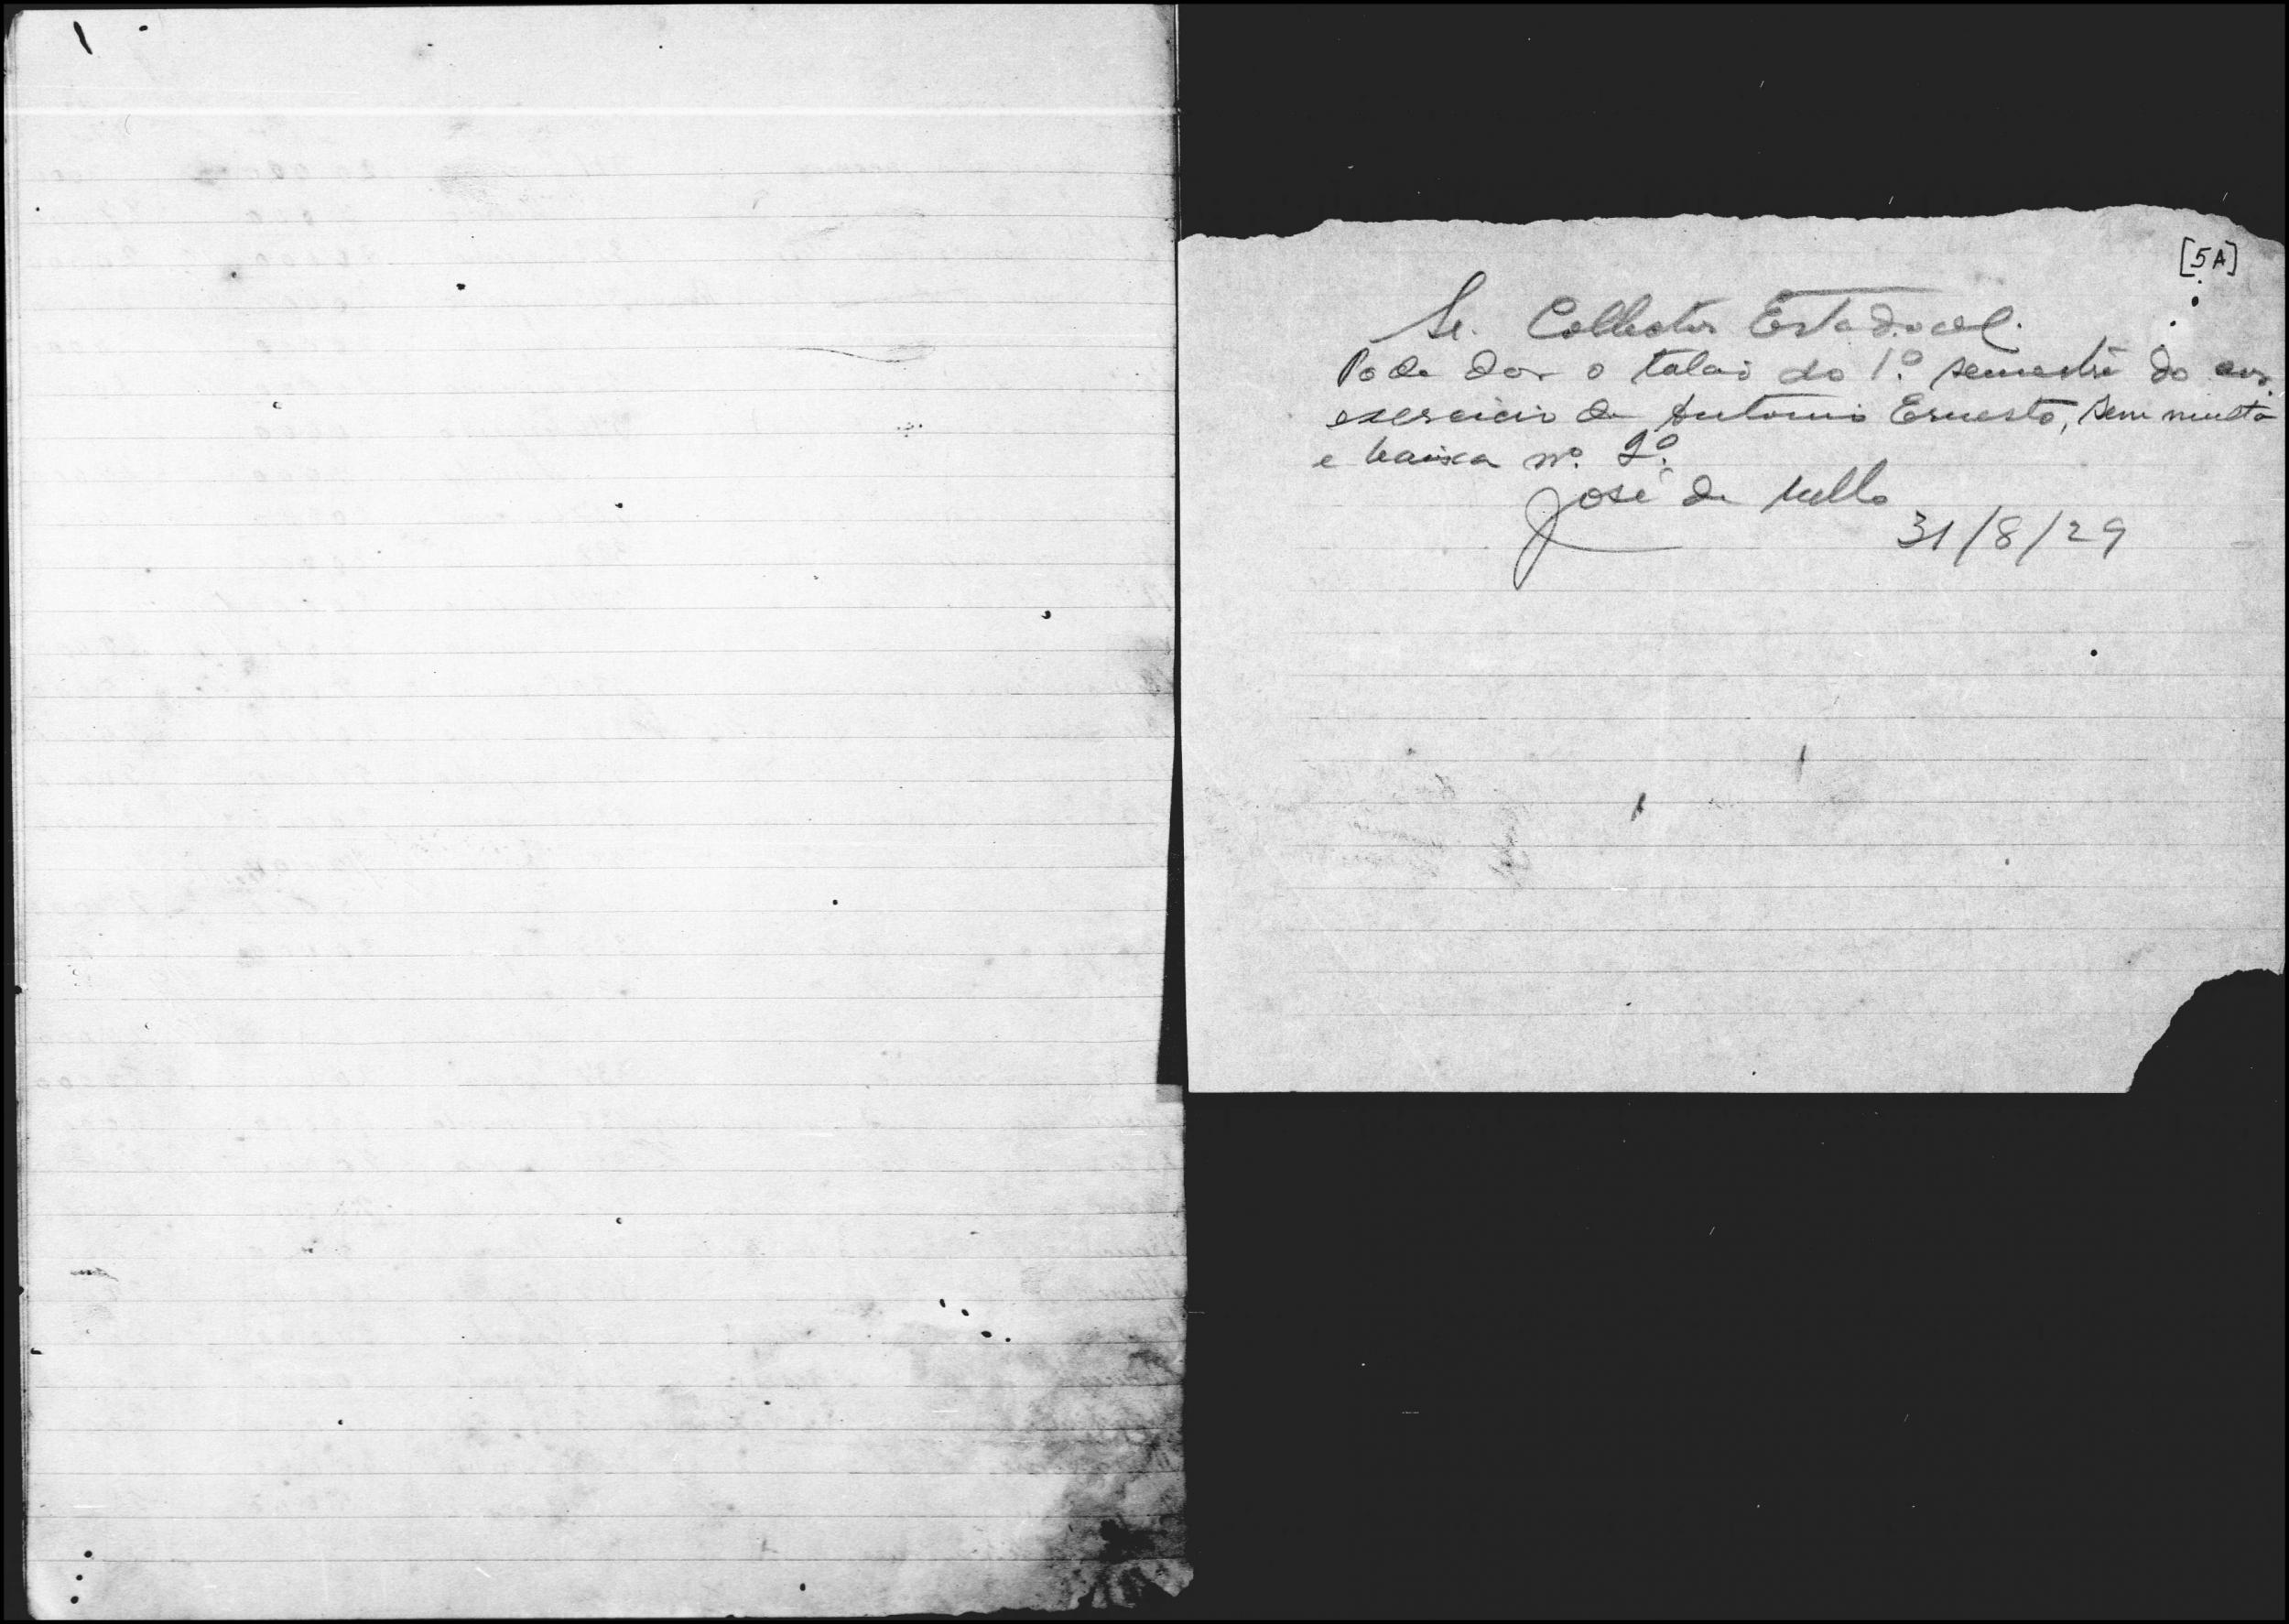 [5A]
Sr. Collector Estadoal.
Pode dar o talão do 1º semestre do
exercicio de Antonio Ernesto, sem multa
e baixa no 2º.
José de Mello
31/8/29